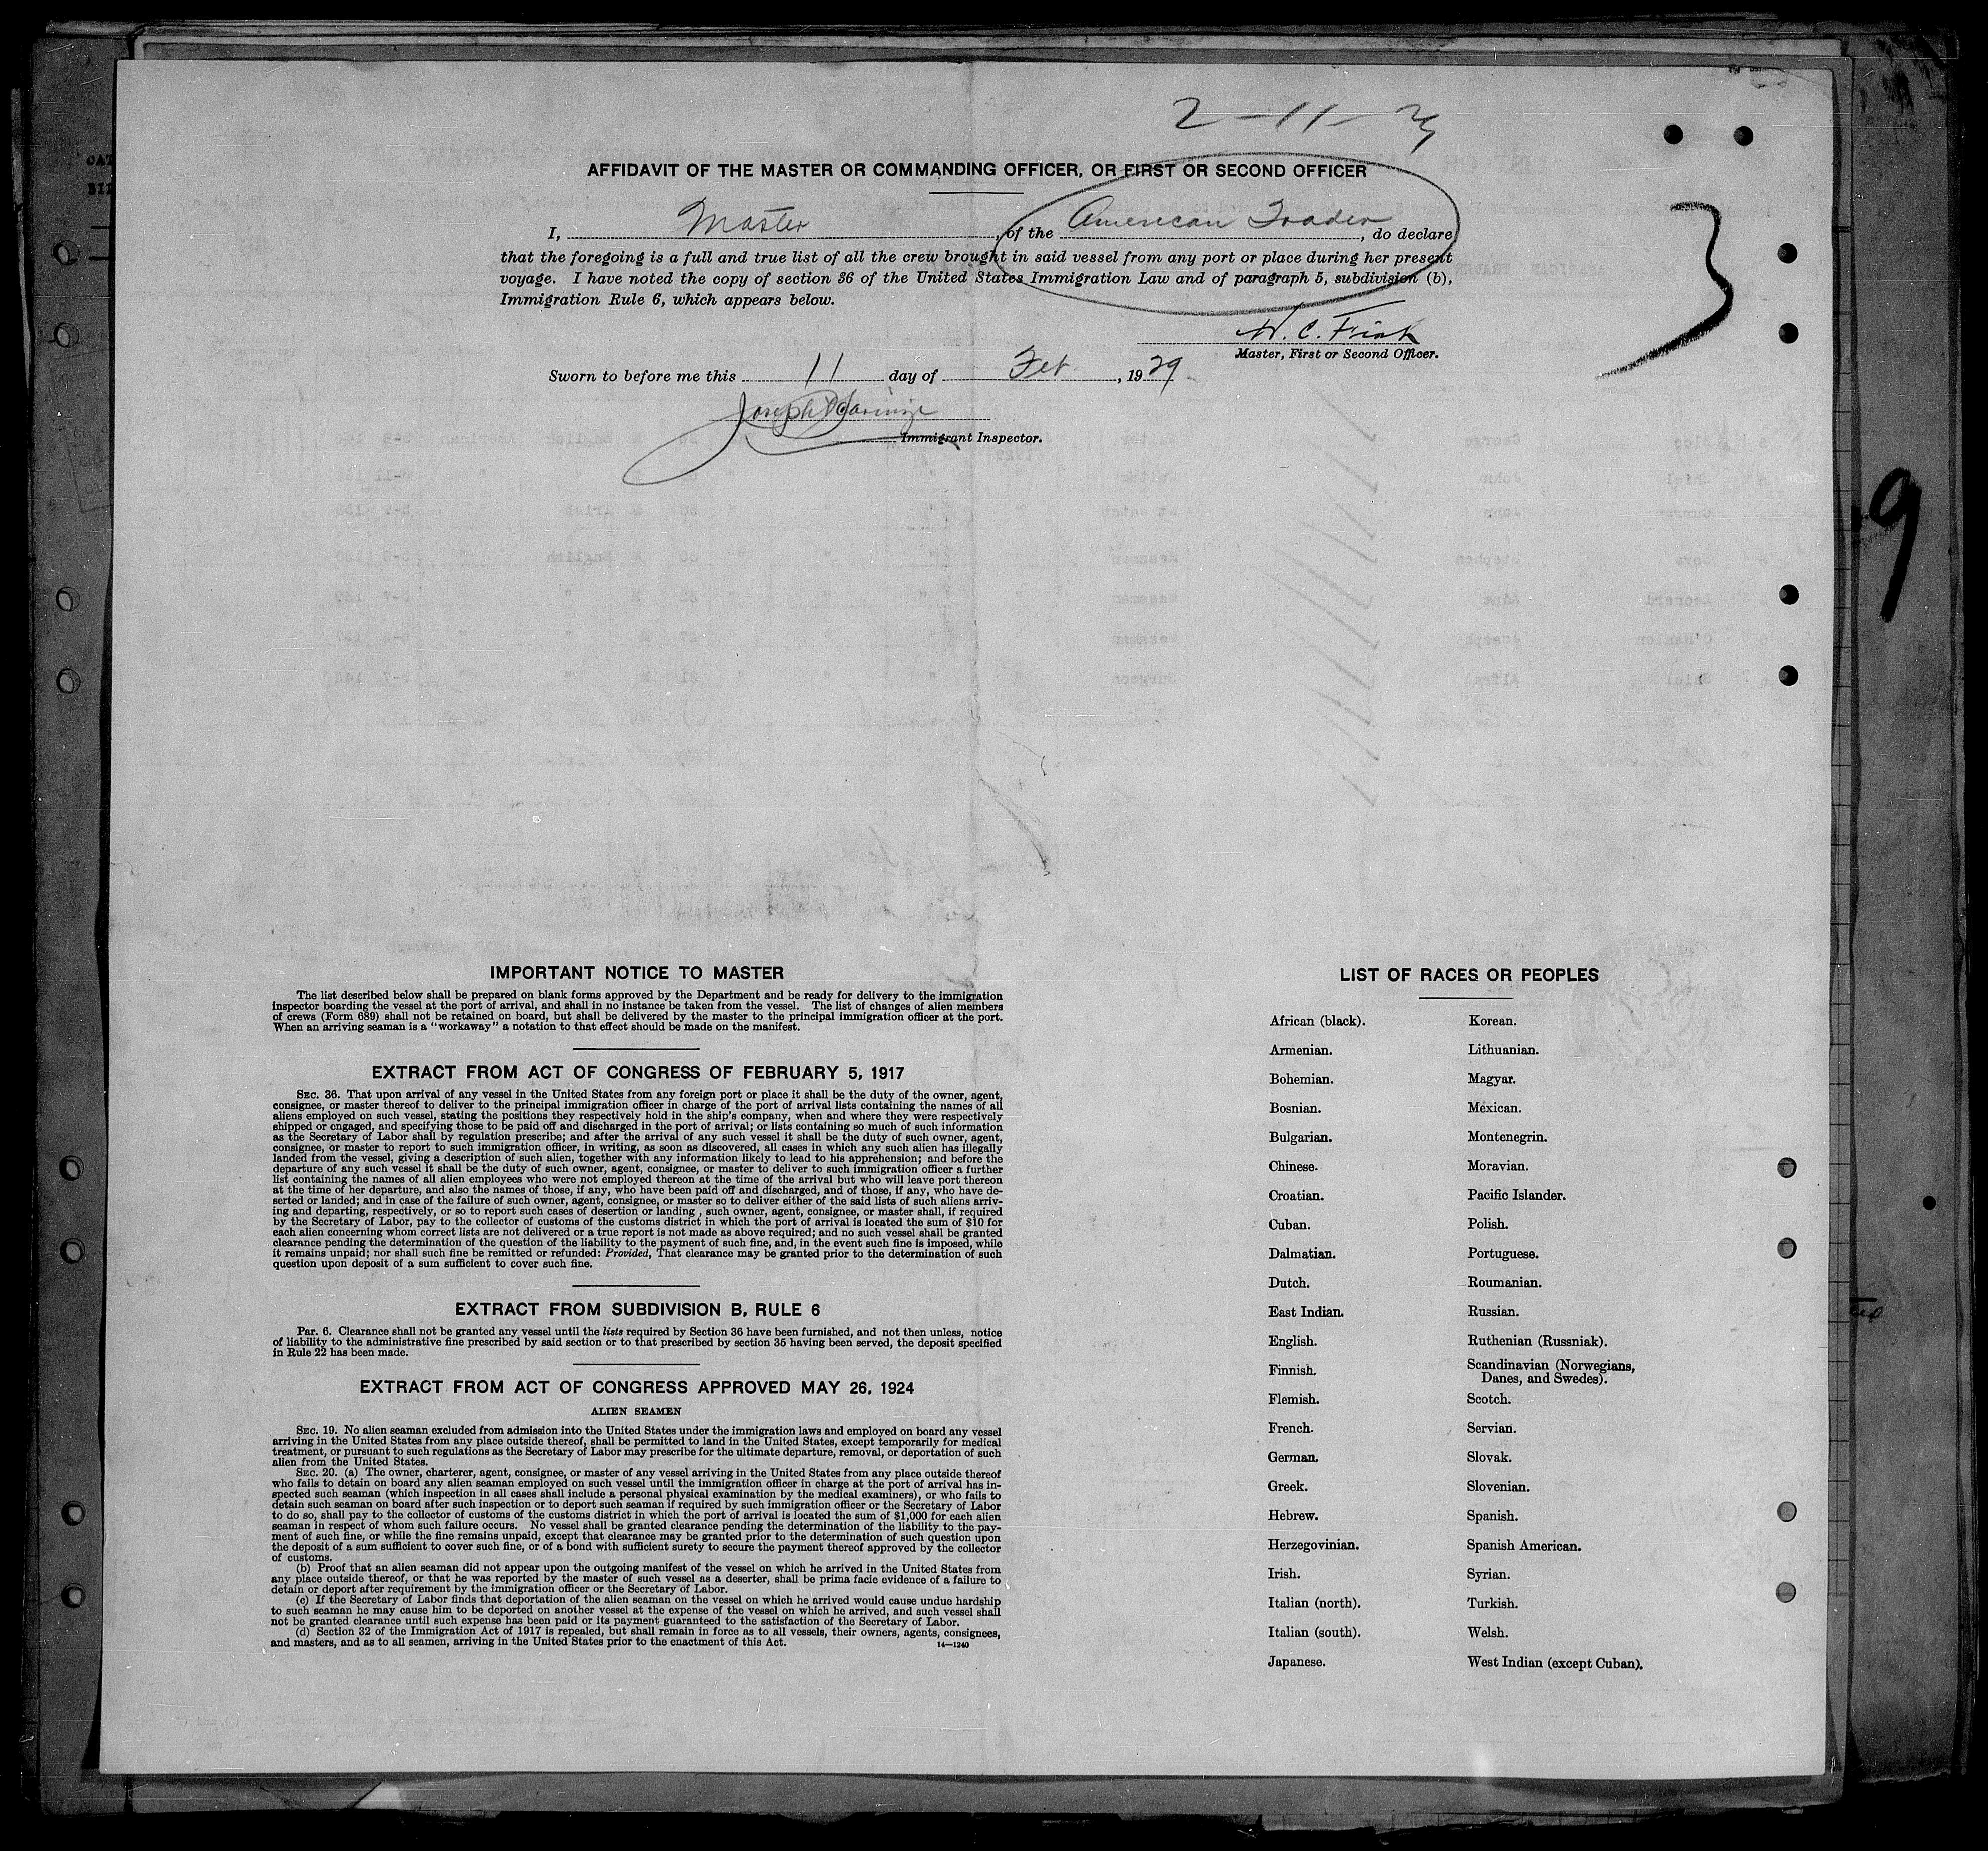 2-11-29
AFFIDAVIT OF THE MASTER OR COMMANDING OFFICER, OR FIRST OR SECOND OFFICER
I, Master, of the American Trader, do declare
that the foregoing is a full and true list of all the crew brought in said vessel from any port or place during her present
voyage. I have noted the copy of section 36 of the United States Immigration Law and of paragraph 5, subdivision (b),
Immigration Rule 6, which appears below.
3
W. C. Fish
Master, First or Second Officer.
Sworn to before me this 11 day of Feb, 1929
Joseph
Immigrant Inspector.
9
IMPORTANT NOTICE TO MASTER
The list described below shall be prepared on blank forms approved by the Department and be ready for delivery to the immigration
inspector boarding the vessel at the port of arrival, and shall in no instance be taken from the vessel. The list of changes of alien members
of crews (Form 689) shall not be retained on board, but shall be delivered by the master to the principal immigration officer at the port.
When an arriving seaman is a "workaway" a notation to that effect should be made on the manifest.
EXTRACT FROM ACT OF CONGRESS OF FEBRUARY 5, 1917
SEC. 36. That upon arrival of any vessel in the United States from any foreign port or place it shall be the duty of the owner, agent,
consignee, or master thereof to deliver to the principal immigration officer in charge of the port of arrival lists containing the names of all
aliens employed on such vessel, stating the positions they respectively hold in the ship's company, when and where they were respectively
shipped or engaged, and specifying those to be paid off and discharged in the port of arrival; or lists containing so much of such information
as the Secretary of Labor shall by regulation prescribe; and after the arrival of any such vessel it shall be the duty of such owner, agent,
consignee, or master to report to such immigration officer, in writing, as soon as discovered, all cases in which any such alien has illegally
landed from the vessel, giving a description of such alien, together with any information likely to lead to his apprehension; and before the
departure of any such vessel it shall be the duty of such owner, agent, consignee, or master to deliver to such immigration officer a further
list containing the names of all alien employees who were not employed thereon at the time of the arrival but who will leave port thereon
at the time of her departure, and also the names of those, if any, who have been paid off and discharged, and of those, if any, who have de-
serted or landed; and in case of the failure of such owner, agent, consignee, or master so to deliver either of the said lists of such aliens arriv-
ing and departing, respectively, or so to report such cases of desertion or landing , such owner, agent, consignee, or master shall, if required
by the Secretary of Labor, pay to the collector of customs of the customs district in which the port of arrival is located the sum of $10 for
each alien concerning whom correct lists are not delivered or a true report is not made as above required; and no such vessel shall be granted
clearance pending the determination of the question of the liability to the payment of such fine, and, in the event such fine is imposed, while
it remains unpaid; nor shall such fine be remitted or refunded: Provided, That clearance may be granted prior to the determination of such
question upon deposit of a sum sufficient to cover such fine.
EXTRACT FROM SUBDIVISION B, RULE 6
Par. 6. Clearance shall not be granted any vessel until the lists required by Section 36 have been furnished, and not then unless, notice
of liability to the administrative fine prescribed by said section or to that prescribed by section 35 having been served, the deposit specified
in Rule 22 has been made.
EXTRACT FROM ACT OF CONGRESS APPROVED MAY 26, 1924
ALIEN SEAMEN
SEC. 19. No alien seaman excluded from admission into the United States under the immigration laws and employed on board any vessel
arriving in the United States from any place outside thereof, shall be permitted to land in the United States, except temporarily for medical
treatment, or pursuant to such regulations as the Secretary of Labor may prescribe for the ultimate departure, removal, or deportation of such
alien from the United States.
SEC. 20. (a) The owner, charterer, agent, consignee, or master of any vessel arriving in the United States from any place outside thereof
who fails to detain on board any alien seaman employed on such vessel until the immigration officer in charge at the port of arrival has in-
spected such seaman (which inspection in all cases shall include a personal physical examination by the medical examiners), or who fails to
detain such seaman on board after such inspection or to deport such seaman if required by such immigration officer or the Secretary of Labor
to do so, shall pay to the collector of customs of the customs district in which the port of arrival is located the sum of $1,000 for each alien
seaman in respect of whom such failure occurs. No vessel shall be granted clearance pending the determination of the liability to the pay-
ment of such fine, or while the fine remains unpaid, except that clearance may be granted prior to the determination of such question upon
the deposit of a sum sufficient to cover such fine, or of a bond with sufficient surety to secure the payment thereof approved by the collector
of customs.
(b) Proof that an alien seaman did not appear upon the outgoing manifest of the vessel on which he arrived in the United States from
any place outside thereof, or that he was reported by the master of such vessel as a deserter, shall be prima facie evidence of a failure to
detain or deport after requirement by the immigration officer or the Secretary of Labor.
(c) If the Secretary of Labor finds that deportation of the alien seaman on the vessel on which he arrived would cause undue hardship
to such seaman he may cause him to be deported on another vessel at the expense of the vessel on which he arrived, and such vessel shall
not be granted clearance until such expense has been paid or its payment guaranteed to the satisfaction of the Secretary of Labor.
(d) Section 32 of the Immigration Act of 1917 is repealed, but shall remain in force as to all vessels, their owners, agents, consignees,
and masters, and as to all seamen, arriving in the United States prior to the enactment of this Act.
14—1240
LIST OF RACES OR PEOPLES
African (black).
Armenian.
Bohemian.
Bosnian.
Bulgarian.
Chinese.
Croatian.
Cuban.
Dalmatian.
Dutch.
East Indian.
English.
Finnish.
Flemish.
French.
German.
Greek.
Hebrew.
Herzegovinian.
Irish.
Italian (north).
Italian (south).
Japanese.
Korean.
Lithuanian.
Magyar.
Mexican.
Montenegrin.
Moravian.
Pacific Islander.
Polish.
Portuguese.
Roumanian.
Russian.
Ruthenian (Russniak).
Scandinavian (Norwegians,
Danes, and Swedes).
Scotch.
Servian.
Slovak.
Slovenian.
Spanish.
Spanish American.
Syrian.
Turkish.
Welsh.
West Indian (except Cuban).